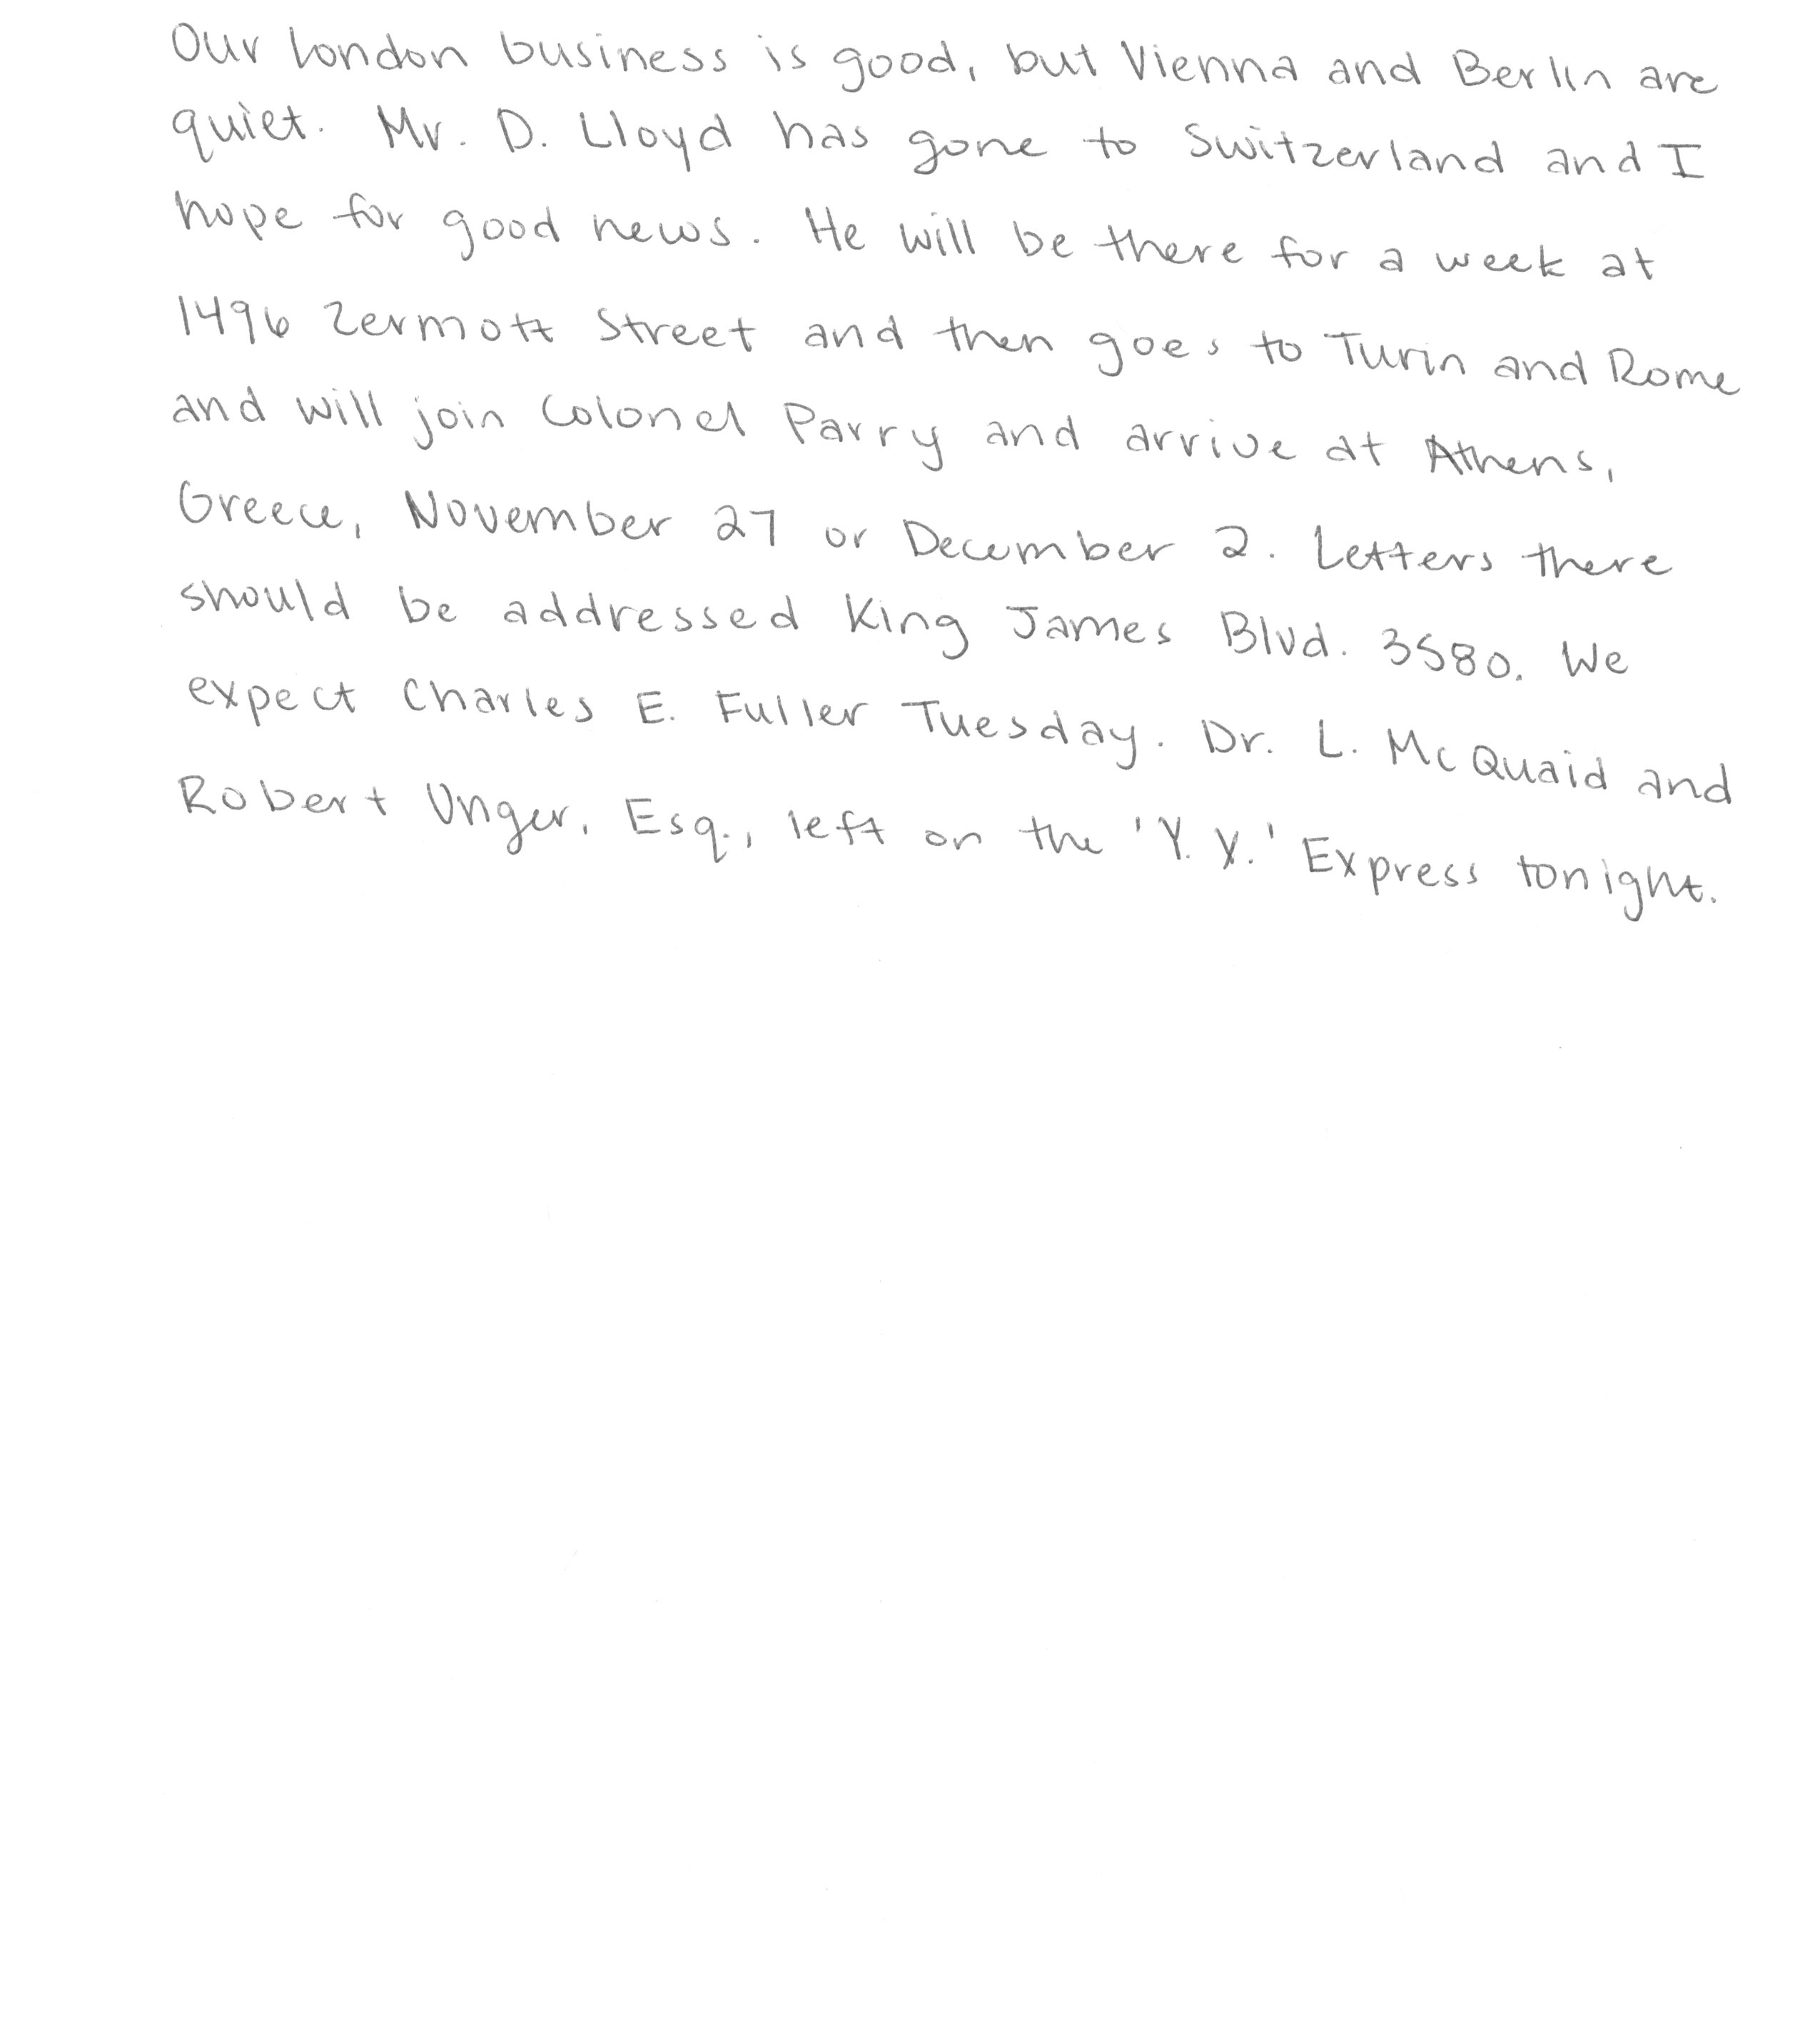 Our London business is good, but Vienna and Berlin are
quiet. Mr. D. Lloyd has gone to Switzerland and I
hope for good news. He will be there for a week at
1496 Zermott Street and then goes to Turin and Rome
and will join Colonel Parry and arrive at Athens,
Greece, November 27 or December 2. Letters there
should be addressed King James Blvd. 3580. We
expect Charles E. Fuller Tuesday. Dr. L. McQuaid and
Robert Unger, Esq., left on the 'Y. X.' Express tonight.